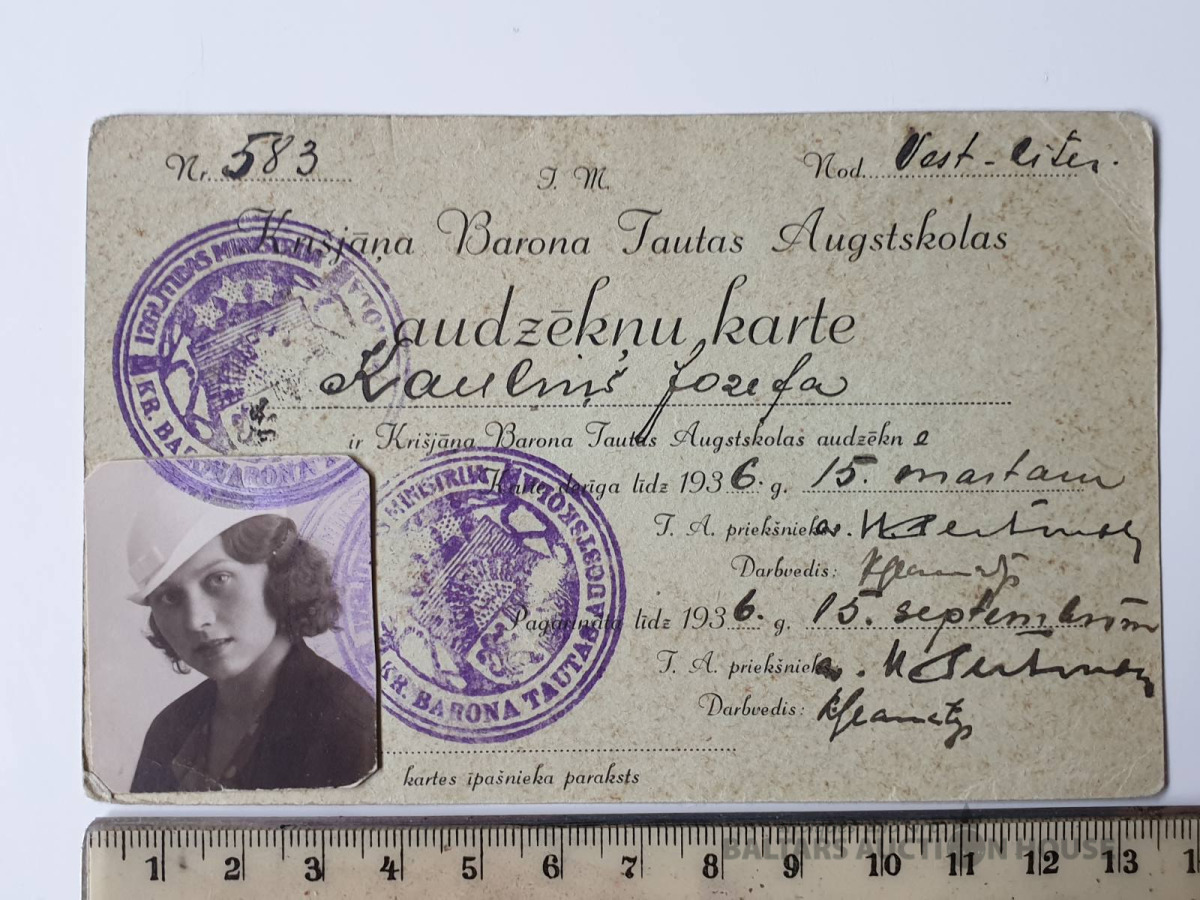 Nr. 583
I. M.
Nod. Vest-liter.
Krišjāņa Barona Tautas Augstskolas
audzēkņu karte
Kauliņš Jozefa
ir Krišjāņa Barona Tautas Augstskolas audzēkne
Karte derīga līdz 1936. g. 15. martam
T. A. priekšnieks
Darbvedis:
Pagarināta līdz 1936. g. 15. septembrim
T. A. priekšnieks
Darbvedis:
kartes īpašnieka paraksts
IZGLĪTĪBAS MINISTRIJA
KR. BARONA TAUTAS AUGSTSKOLA
KR. BARONA TAUTAS AUGSTSKOLA
1 2 3 4 5 6 7 8 9 10 11 12 13
BALTARS AUCTION HOUSE